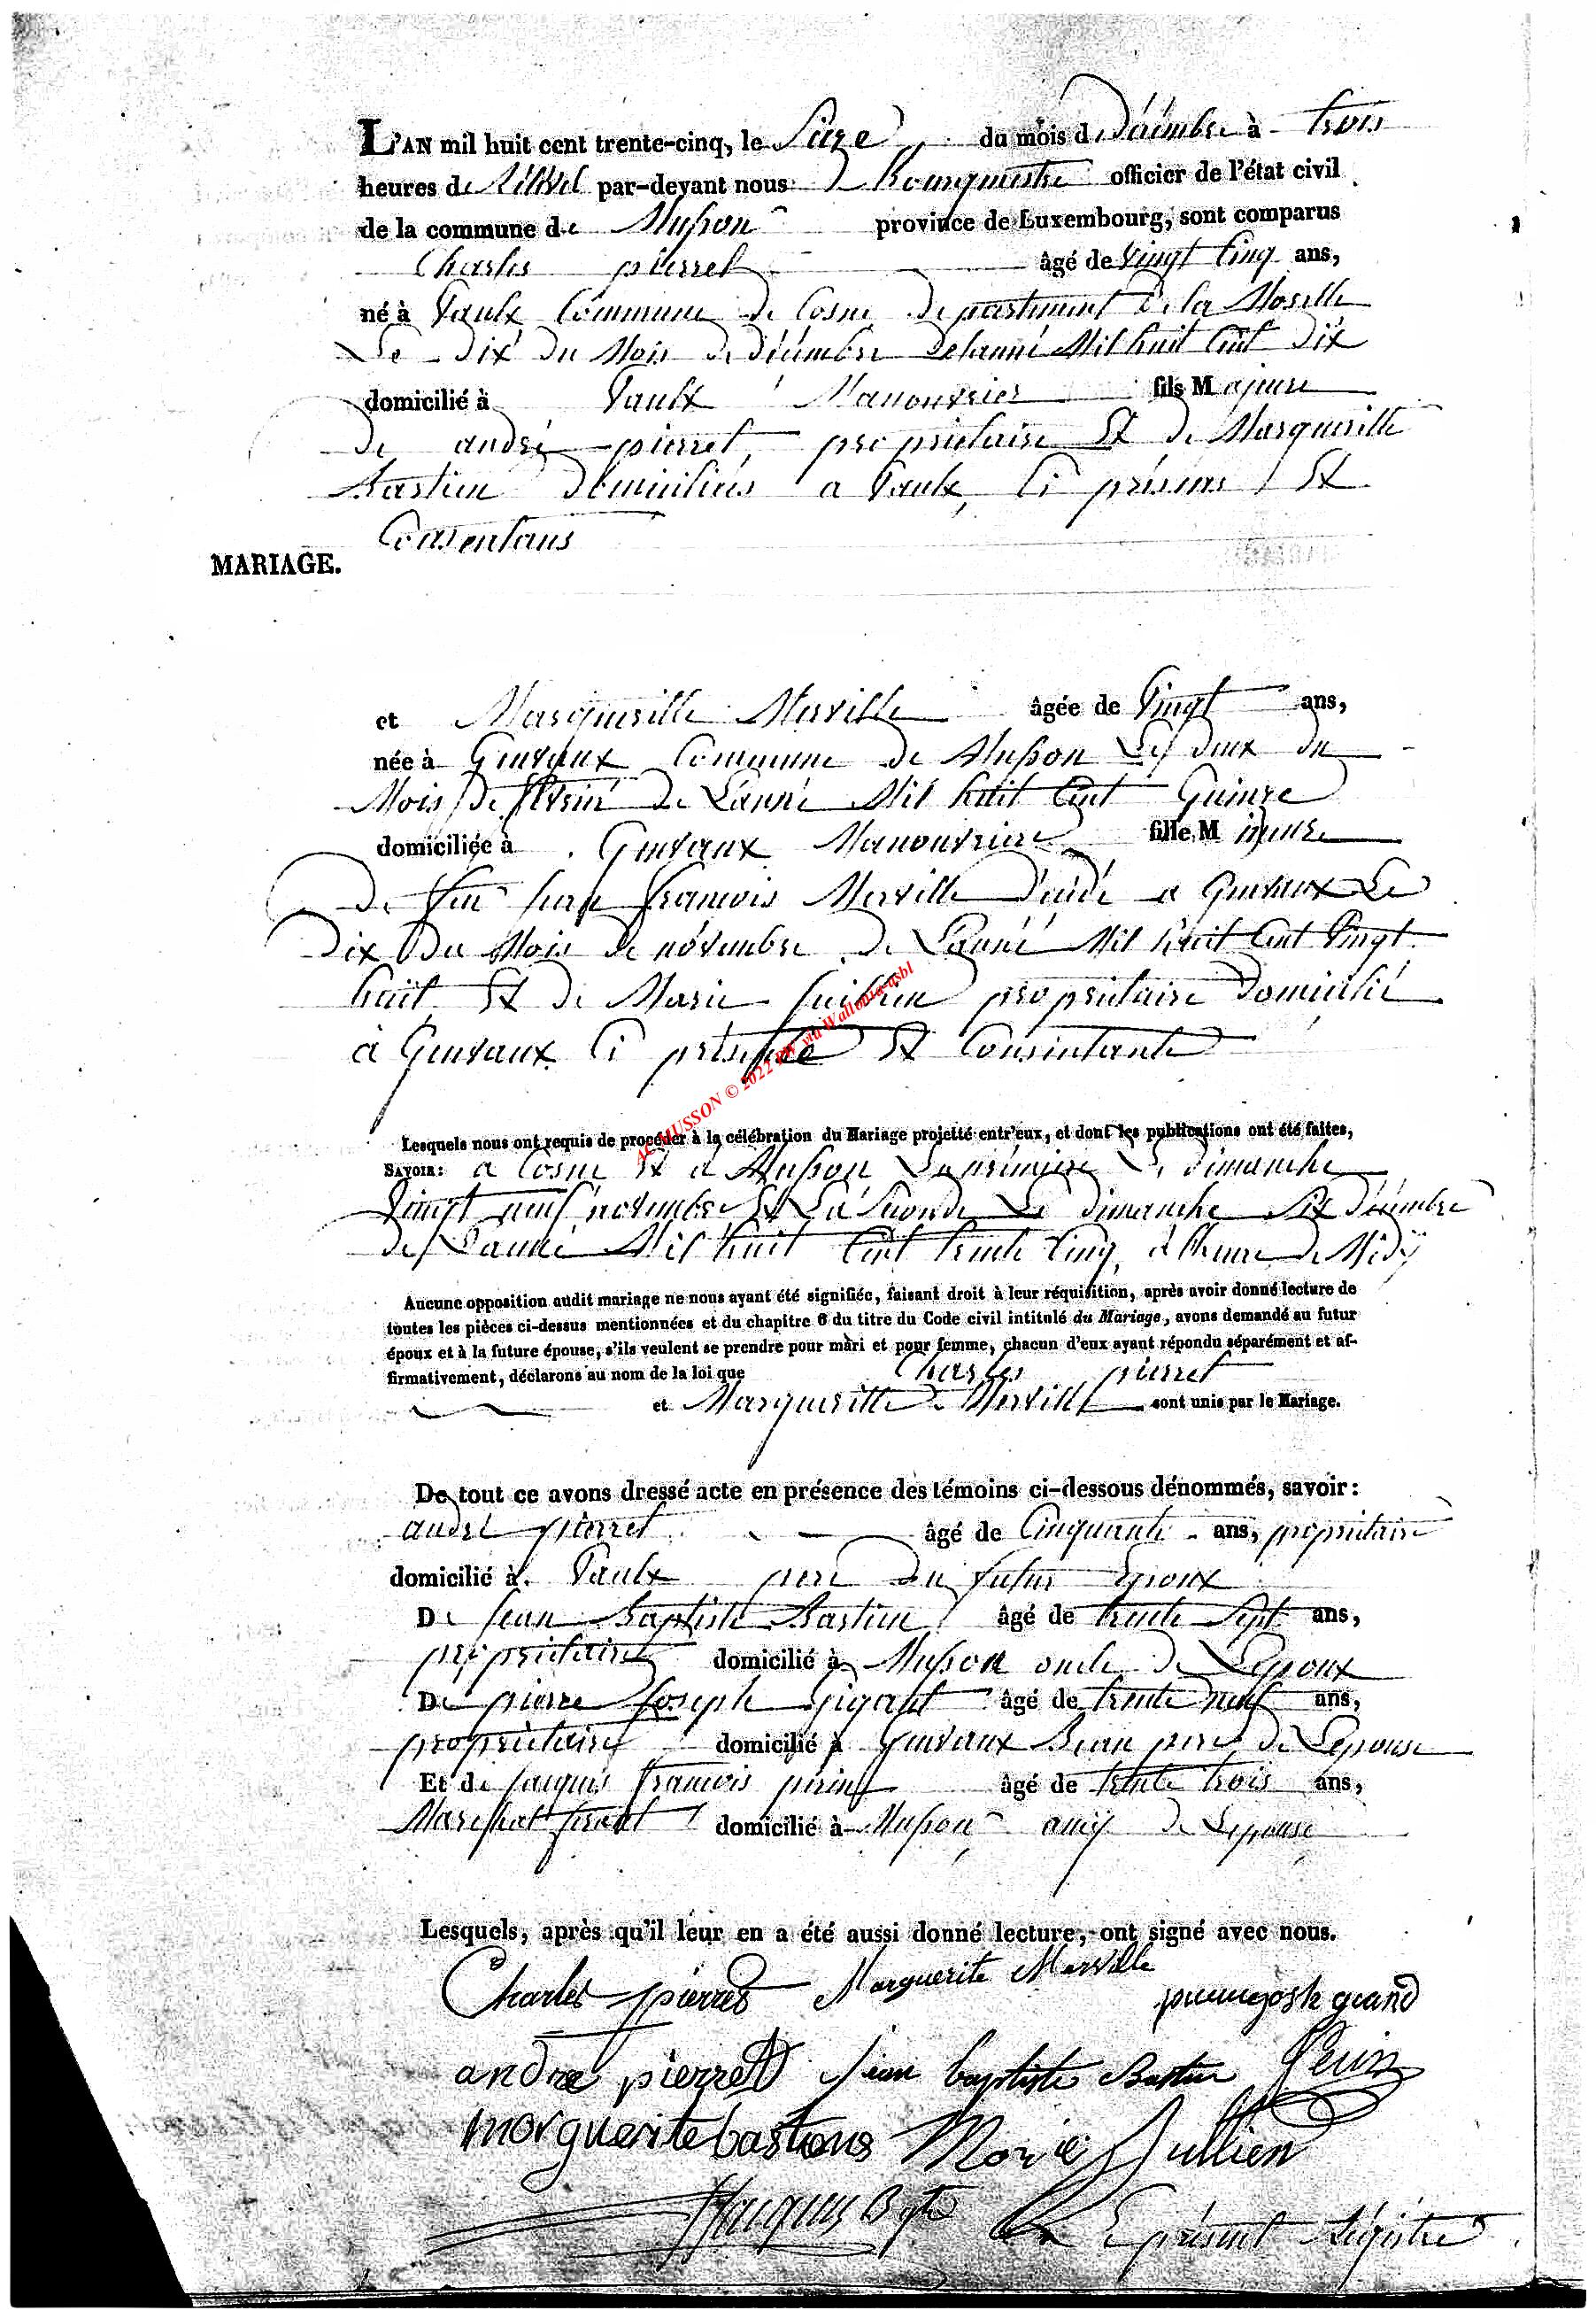 L'AN mil huit cent trente-cinq, le Seize du mois de Décembre à trois
heures de Rélevé par-devant nous Bourguestre officier de l'état civil
de la commune de Musson province de Luxembourg, sont comparus
Charles pierret âgé de vingt Cinq ans,
né à Vaulx Commune de Cosne Departement de la Moselle
Le Dix du Mois de décembre de lanné Mil huit Cent Dix
domicilié à Vaulx Manouvrier fils Majeure
de andré pierret, propriétaire Et de Margueritte
Bastien domiciliés a Vaulx, Ci présens Et
Consentans
MARIAGE.
et Margueritte Merville âgée de Vingt ans,
née à Gennevaux Commune de Musson Les deux du
Mois de fevrié de L'année Mil huit Cent Quinze
domiciliée à Gennevaux Manouvriere fille Mineure
De feu Jean francois Merville Décédé a Gennevaux Le
Dix Du Mois de novembre de L'année Mil huit Cent Vingt
huit Et de Marie Juillien propriétaire Domicilié
à Gennevaux Ci présente Et Consentante
AC MUSSON © 2022 via Wallonia-asbl
Lesquels nous ont requis de procéder à la célébration du Mariage projetté entr'eux, et dont les publications ont été faites,
SAVOIR: a Cosne Et a Musson La première Le dimanche
Vingt neuf novembre Et La Seconde Le dimanche Six décembre
de L'année Mil huit Cent trente Cinq, à l'heure de Midÿ
Aucune opposition audit mariage ne nous ayant été signifiée, faisant droit à leur réquisition, après avoir donné lecture de
toutes les pièces ci-dessus mentionnées et du chapitre 6 du titre du Code civil intitulé du Mariage, avons demandé au futur
époux et à la future épouse, s'ils veulent se prendre pour mari et pour femme, chacun d'eux ayant répondu séparément et af-
firmativement, déclarons au nom de la loi que Charles pierret
et Margueritte Merville sont unis par le Mariage.
De tout ce avons dressé acte en présence des témoins ci-dessous dénommés, savoir:
andré pierret âgé de Cinquante ans, propriétaire
domicilié à Vaulx pere Du futur Epoux
De Jean Baptiste Bastien âgé de trente Sept ans,
propriétaire domicilié à Musson oncle de L'Epoux
De pierre Joseph gigant âgé de trente neuf ans,
propriétaire domicilié à Gennevaux Beau pere de Lepouse
Et de Jacques francois périn âgé de trente trois ans,
Marechal ferant domicilié à Musson amÿ de Lepouse
Lesquels, après qu'il leur en a été aussi donné lecture, ont signé avec nous.
Charles pierret Marguerite Merville
andre pierret Jean baptiste Bastien Perin
morguerite bastiens Marie Jullien
Le présent Régistre